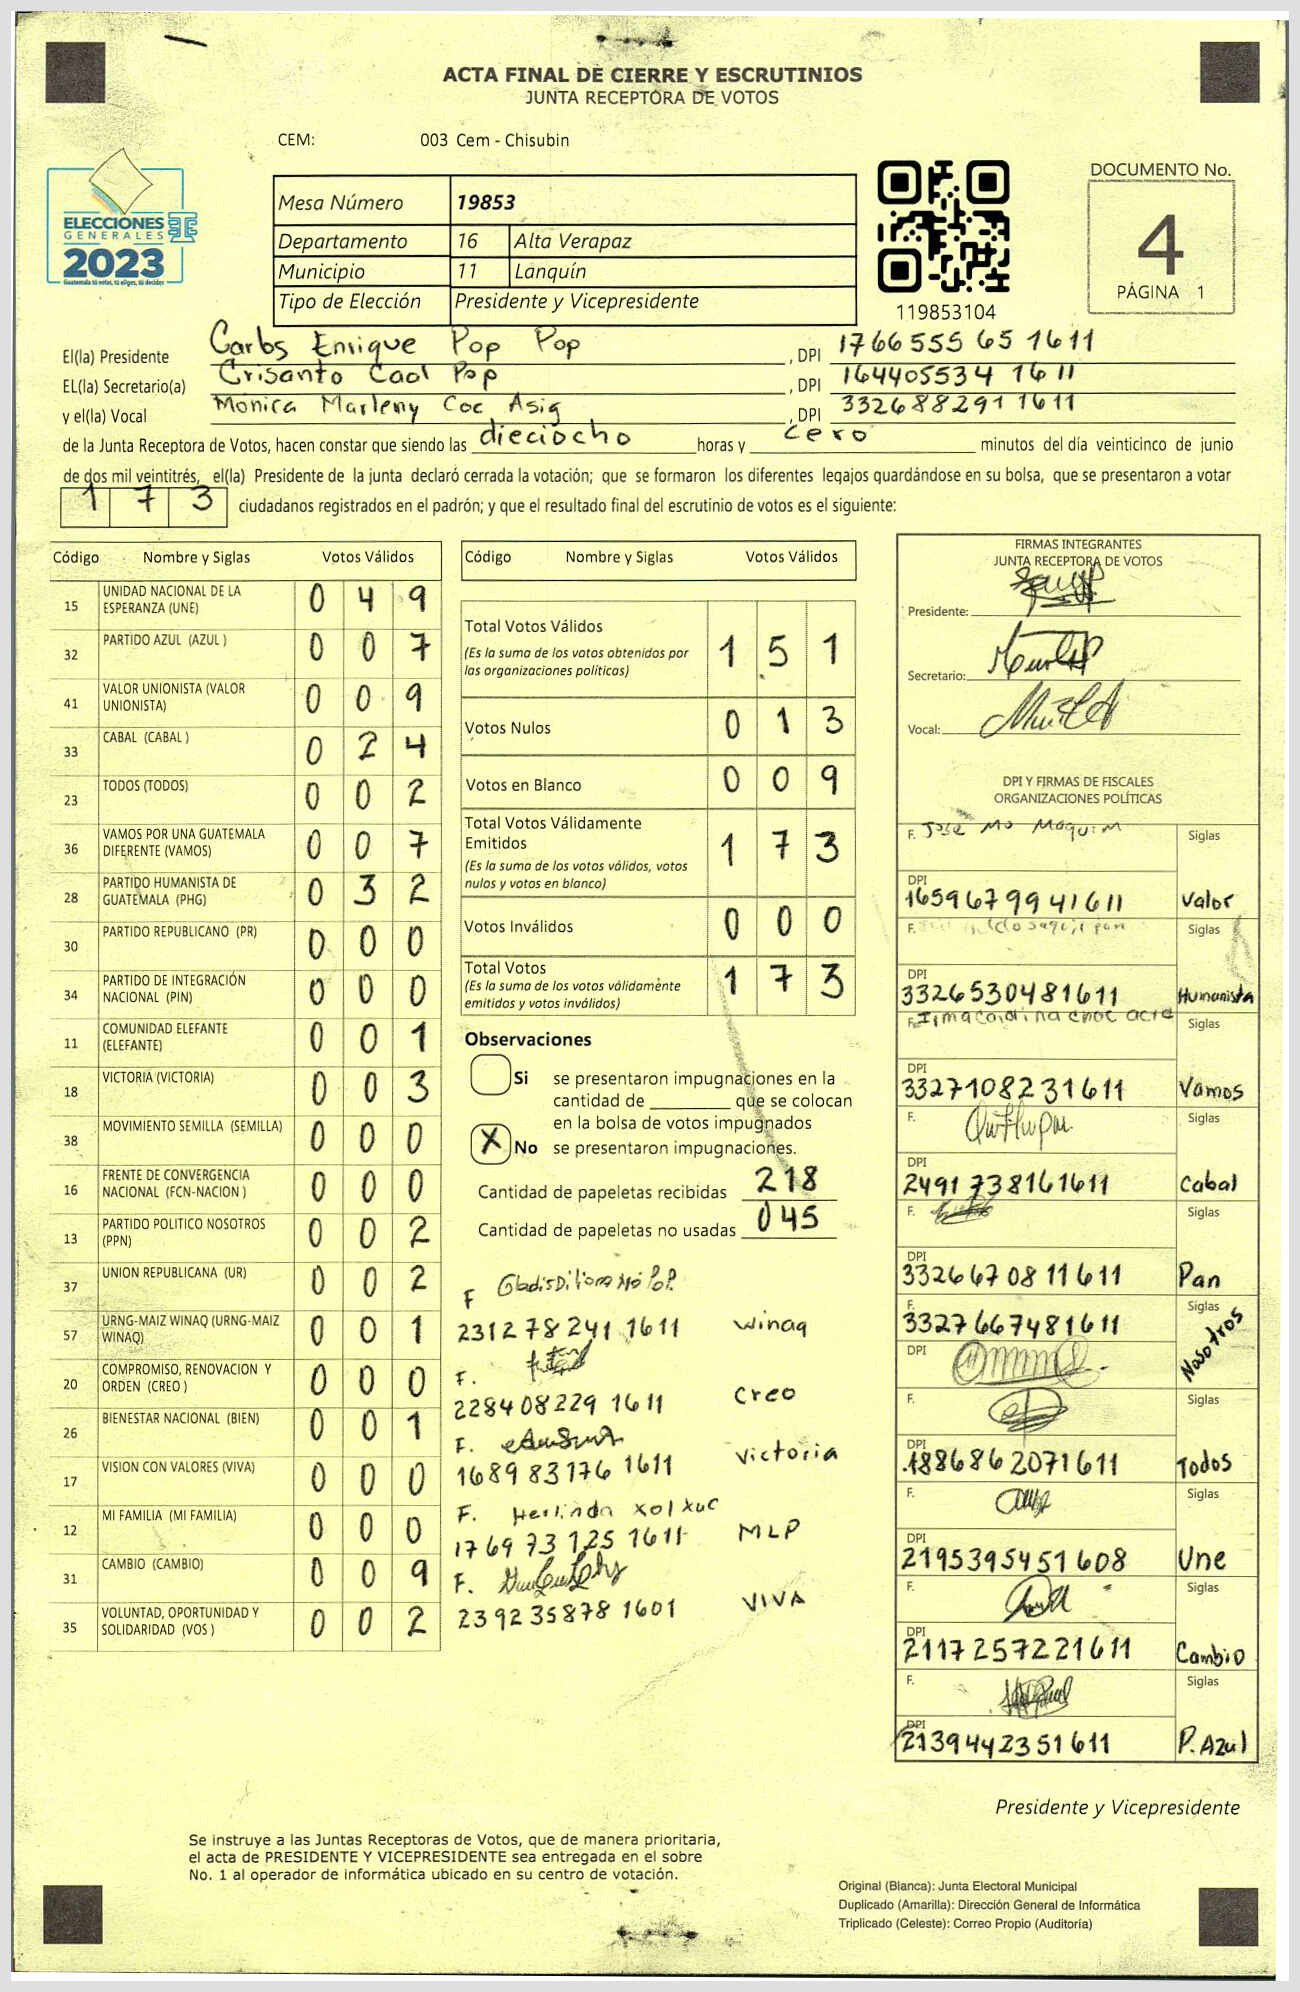 ACTA FINAL DE CIERRE Y ESCRUTINIOS
JUNTA RECEPTORA DE VOTOS
CEM: 003 Cem - Chisubin
ELECCIONES
GENERALES
2023
Guatemala tú votas, tú eliges, tú decides
Mesa Número 19853
Departamento 16 Alta Verapaz
Municipio 11 Lanquín
Tipo de Elección Presidente y Vicepresidente
119853104
DOCUMENTO No.
4
PÁGINA 1
El(la) Presidente Carlos Enrique Pop Pop , DPI 1766555 65 1611
EL(la) Secretario(a) Crisanto Caal Pop , DPI 164405534 1611
y el(la) Vocal Mónica Marleny Coc Asig , DPI 332688291 1611
de la Junta Receptora de Votos, hacen constar que siendo las dieciocho horas y cero minutos del día veinticinco de junio
de dos mil veintitrés, el(la) Presidente de la junta declaró cerrada la votación; que se formaron los diferentes legajos guardándose en su bolsa, que se presentaron a votar
1 7 3 ciudadanos registrados en el padrón; y que el resultado final del escrutinio de votos es el siguiente:
Código Nombre y Siglas Votos Válidos
15 UNIDAD NACIONAL DE LA ESPERANZA (UNE) 0 4 9
32 PARTIDO AZUL (AZUL ) 0 0 7
41 VALOR UNIONISTA (VALOR UNIONISTA) 0 0 9
33 CABAL (CABAL ) 0 2 4
23 TODOS (TODOS) 0 0 2
36 VAMOS POR UNA GUATEMALA DIFERENTE (VAMOS) 0 0 7
28 PARTIDO HUMANISTA DE GUATEMALA (PHG) 0 3 2
30 PARTIDO REPUBLICANO (PR) 0 0 0
34 PARTIDO DE INTEGRACIÓN NACIONAL (PIN) 0 0 0
11 COMUNIDAD ELEFANTE (ELEFANTE) 0 0 1
18 VICTORIA (VICTORIA) 0 0 3
38 MOVIMIENTO SEMILLA (SEMILLA) 0 0 0
16 FRENTE DE CONVERGENCIA NACIONAL (FCN-NACION ) 0 0 0
13 PARTIDO POLITICO NOSOTROS (PPN) 0 0 2
37 UNION REPUBLICANA (UR) 0 0 2
57 URNG-MAIZ WINAQ (URNG-MAIZ WINAQ) 0 0 1
20 COMPROMISO, RENOVACION Y ORDEN (CREO ) 0 0 0
26 BIENESTAR NACIONAL (BIEN) 0 0 1
17 VISION CON VALORES (VIVA) 0 0 0
12 MI FAMILIA (MI FAMILIA) 0 0 0
31 CAMBIO (CAMBIO) 0 0 9
35 VOLUNTAD, OPORTUNIDAD Y SOLIDARIDAD (VOS ) 0 0 2
Código Nombre y Siglas Votos Válidos
Total Votos Válidos 1 5 1
(Es la suma de los votos obtenidos por
las organizaciones políticas)
Votos Nulos 0 1 3
Votos en Blanco 0 0 9
Total Votos Válidamente
Emitidos 1 7 3
(Es la suma de los votos válidos, votos
nulos y votos en blanco)
Votos Inválidos 0 0 0
Total Votos 1 7 3
(Es la suma de los votos válidamente
emitidos y votos inválidos)
Observaciones
Si se presentaron impugnaciones en la
cantidad de ________ que se colocan
en la bolsa de votos impugnados
X No se presentaron impugnaciones.
Cantidad de papeletas recibidas 218
Cantidad de papeletas no usadas 045
F
231278241 1611 Winaq
F.
228408229 1611 Creo
F.
168983176 1611 Victoria
F. Herlinda Xol Xuc
176973125 1611 MLP
F.
239235878 1601 VIVA
FIRMAS INTEGRANTES
JUNTA RECEPTORA DE VOTOS
Presidente:
Secretario:
Vocal:
DPI Y FIRMAS DE FISCALES
ORGANIZACIONES POLÍTICAS
F. José Mo Maquim Siglas
DPI
1659679941611 Valor
F. Siglas
DPI
3326530481611 Humanista
F. Irma Siglas
DPI
3327108231611 Vamos
F. Siglas
DPI
2491738161611 Cabal
F. Siglas
DPI
3326670811611 Pan
F. Siglas
3327667481611 Nosotros
DPI
F. Siglas
DPI
1886862071611 Todos
F. Siglas
DPI
2195395451608 Une
F. Siglas
DPI
2117257221611 Cambio
F. Siglas
DPI
2139442351611 P. Azul
Presidente y Vicepresidente
Se instruye a las Juntas Receptoras de Votos, que de manera prioritaria,
el acta de PRESIDENTE Y VICEPRESIDENTE sea entregada en el sobre
No. 1 al operador de informática ubicado en su centro de votación.
Original (Blanca): Junta Electoral Municipal
Duplicado (Amarilla): Dirección General de Informática
Triplicado (Celeste): Correo Propio (Auditoría)